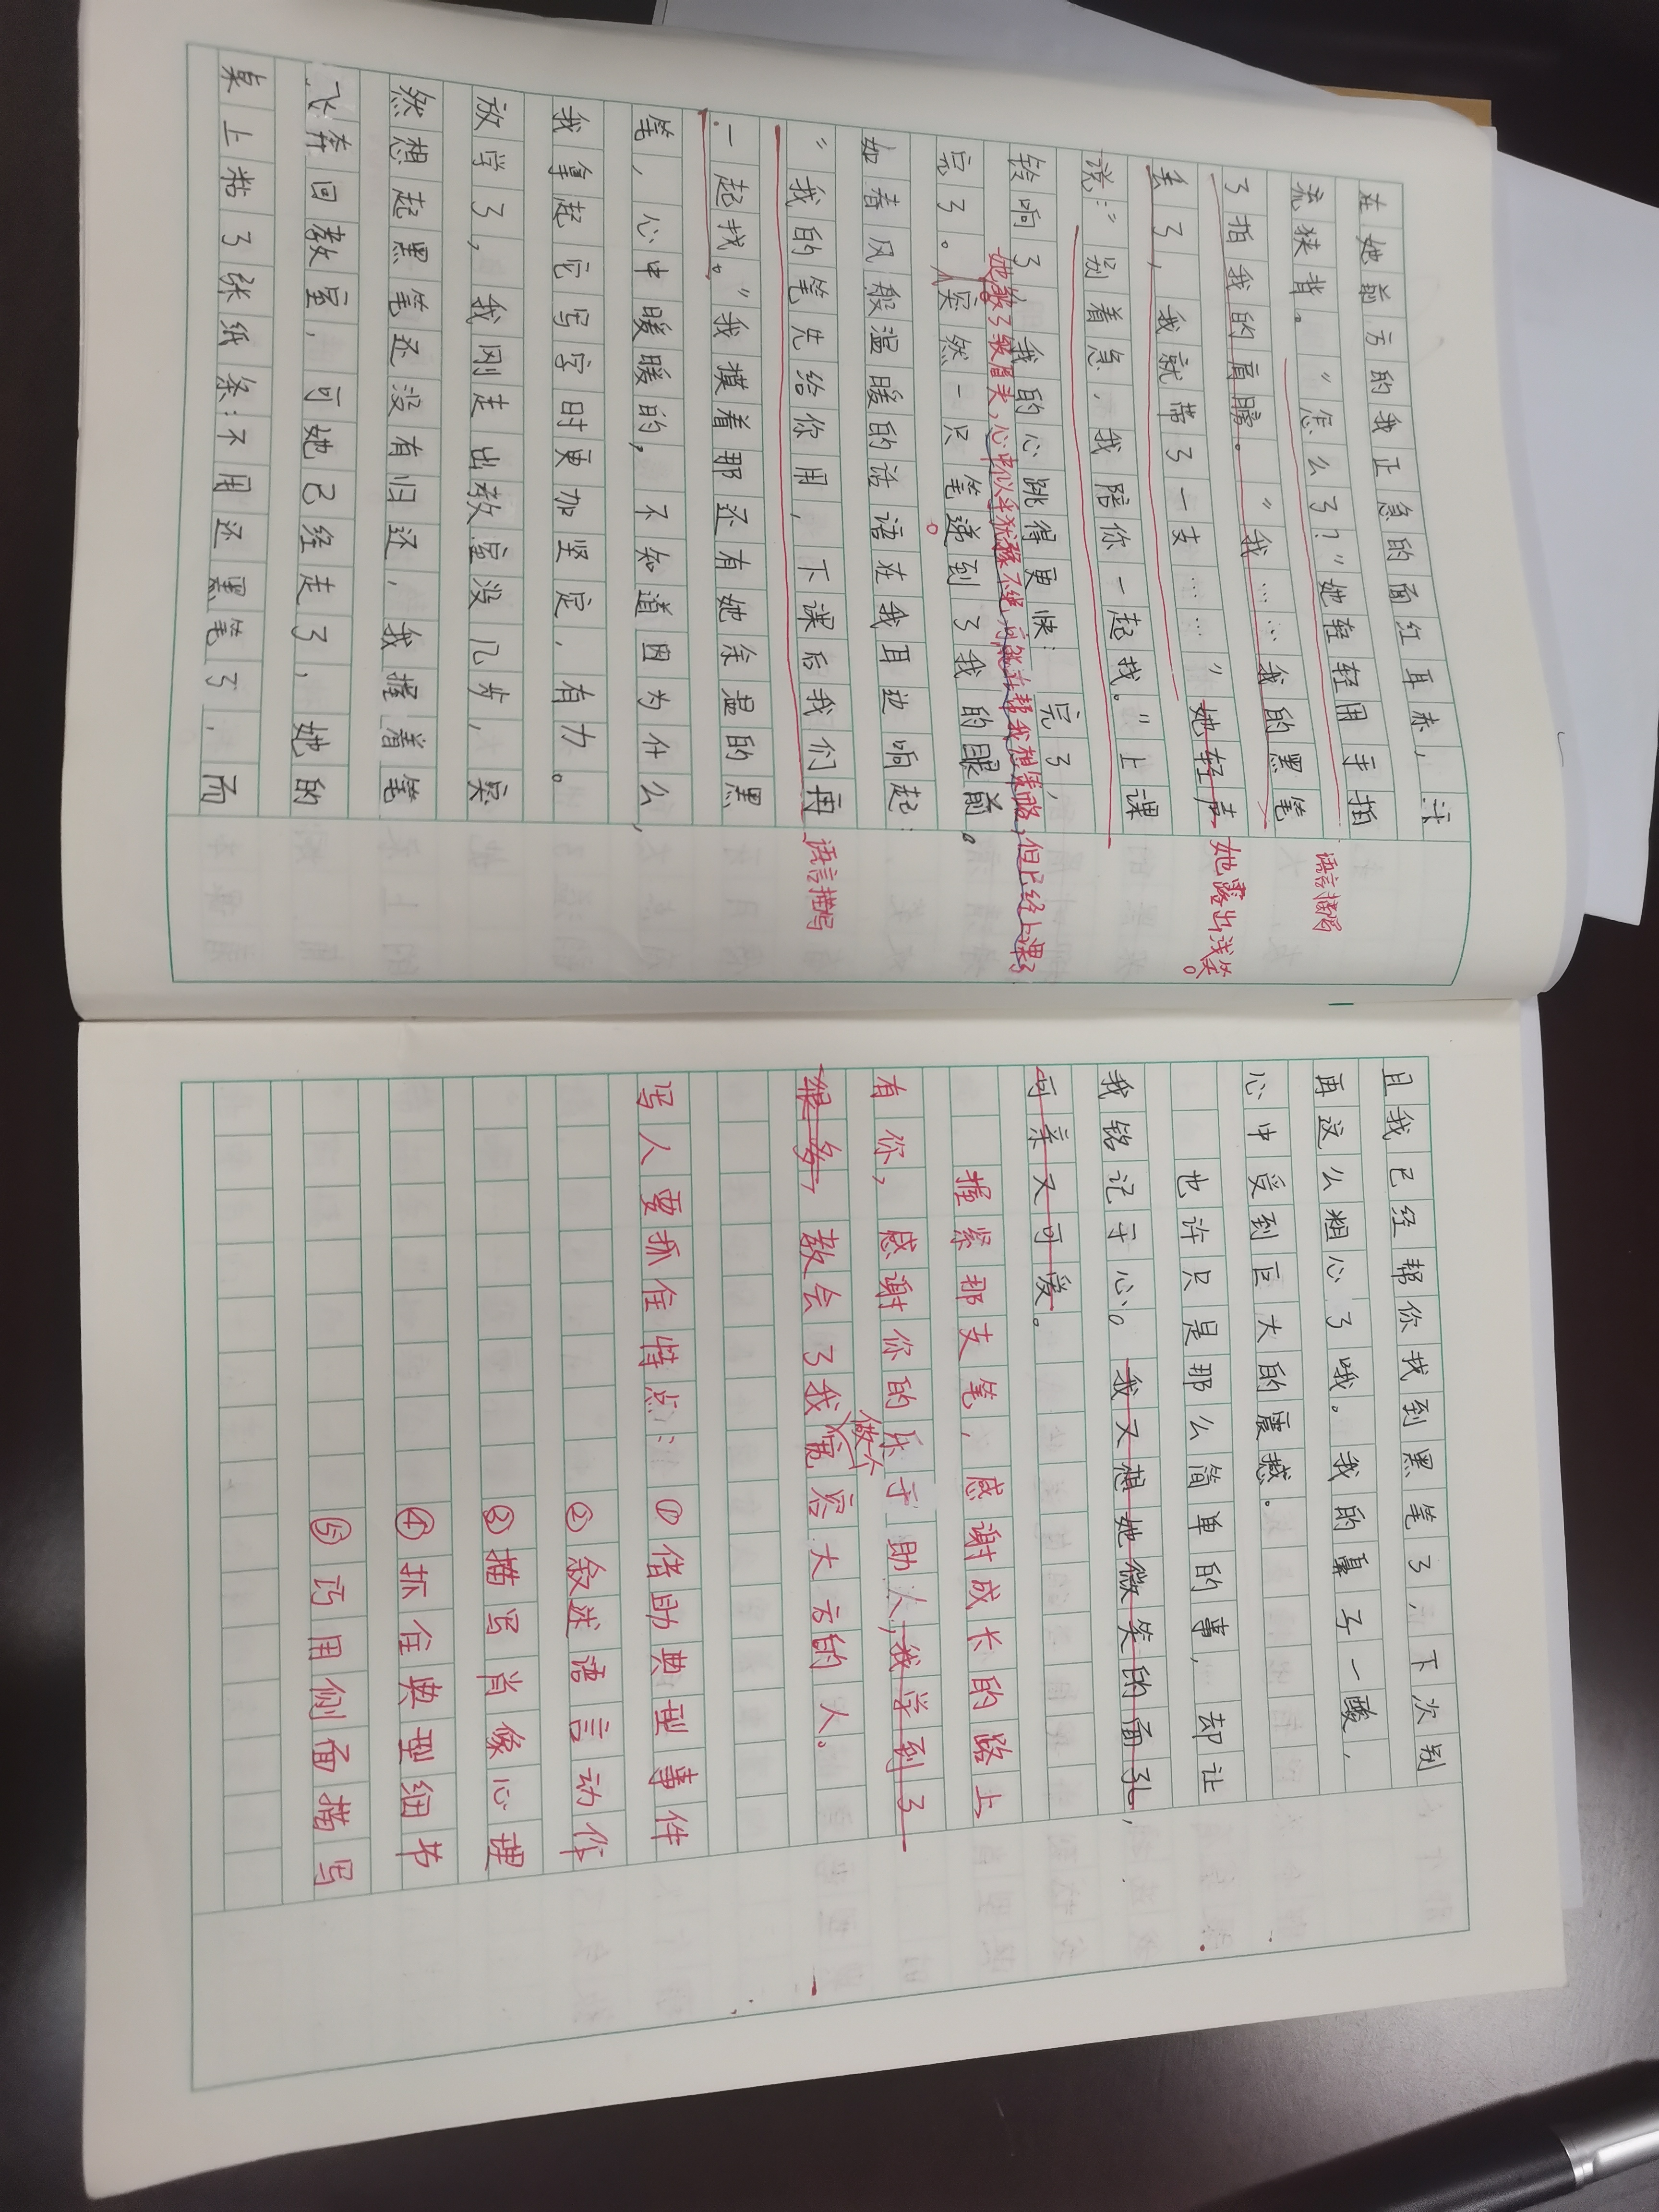 在她前方的我正急的面红耳赤，汗
流狭背。“怎么了？”她轻轻用手拍
语言描写
了拍我的肩膀。“我……我的黑笔
丢了，我就带了一支……”她轻声
她露出浅笑。
说：“别着急，我陪你一起找。”上课
铃响了，我的心跳得更快：完了，
她皱了皱眉关，心中似乎犹豫不绝，可能在帮我想策略，但已经上课了
完了。突然一只笔递到了我的眼前。
如春风般温暖的话语在我耳边响起：
“我的笔先给你用，下课后我们再
语言描写
一起找。”我摸着那还有她余温的黑
笔，心中暖暖的，不知道因为什么，
我拿起它写字时更加坚定，有力。
放学了，我刚走出教室没几步，突
然想起黑笔还没有归还，我握着笔
飞奔回教室，可她已经走了，她的
桌上粘了张纸条：不用还黑笔了，而
且我已经帮你找到黑笔了，下次别
再这么粗心了哦。我的鼻子一酸，
心中受到巨大的震撼。
也许只是那么简单的事，却让
我铭记于心。我又想她微笑的面孔，
可亲又可爱。
握紧那支笔，感谢成长的路上
有你，感谢你的乐于助人，我学到了
很多，教会了我做个宽容大方的人。
写人要抓住特点：①借助典型事件
②叙述语言动作
③描写肖像心理
④抓住典型细节
⑤巧用侧面描写